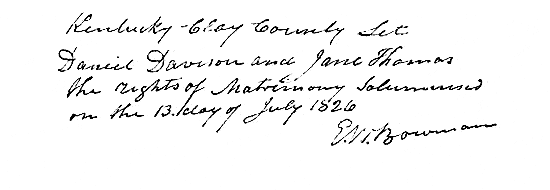 Kentucky - Clay County Sct
Daniel Davison and Jane Thomas
the rights of Matrimony Solemnised
on the 13. day of July 1826
E. W. Bowman